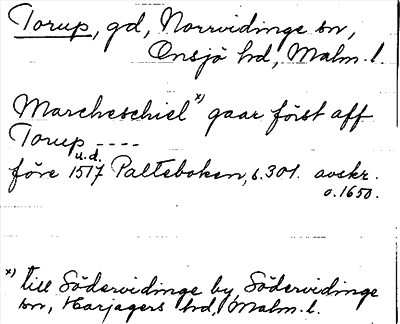 Torup, gd, Norrvidinge sn,
Onsjö hd, Malm. l.
Marcheschiel x) gaar först aff
Torup ----
u.d.
före 1517 Palteboken, s. 301. avskr.
o. 1650.
x) till Södervidinge by, Södervidinge
sn, Harjagers hd, Malm. l.